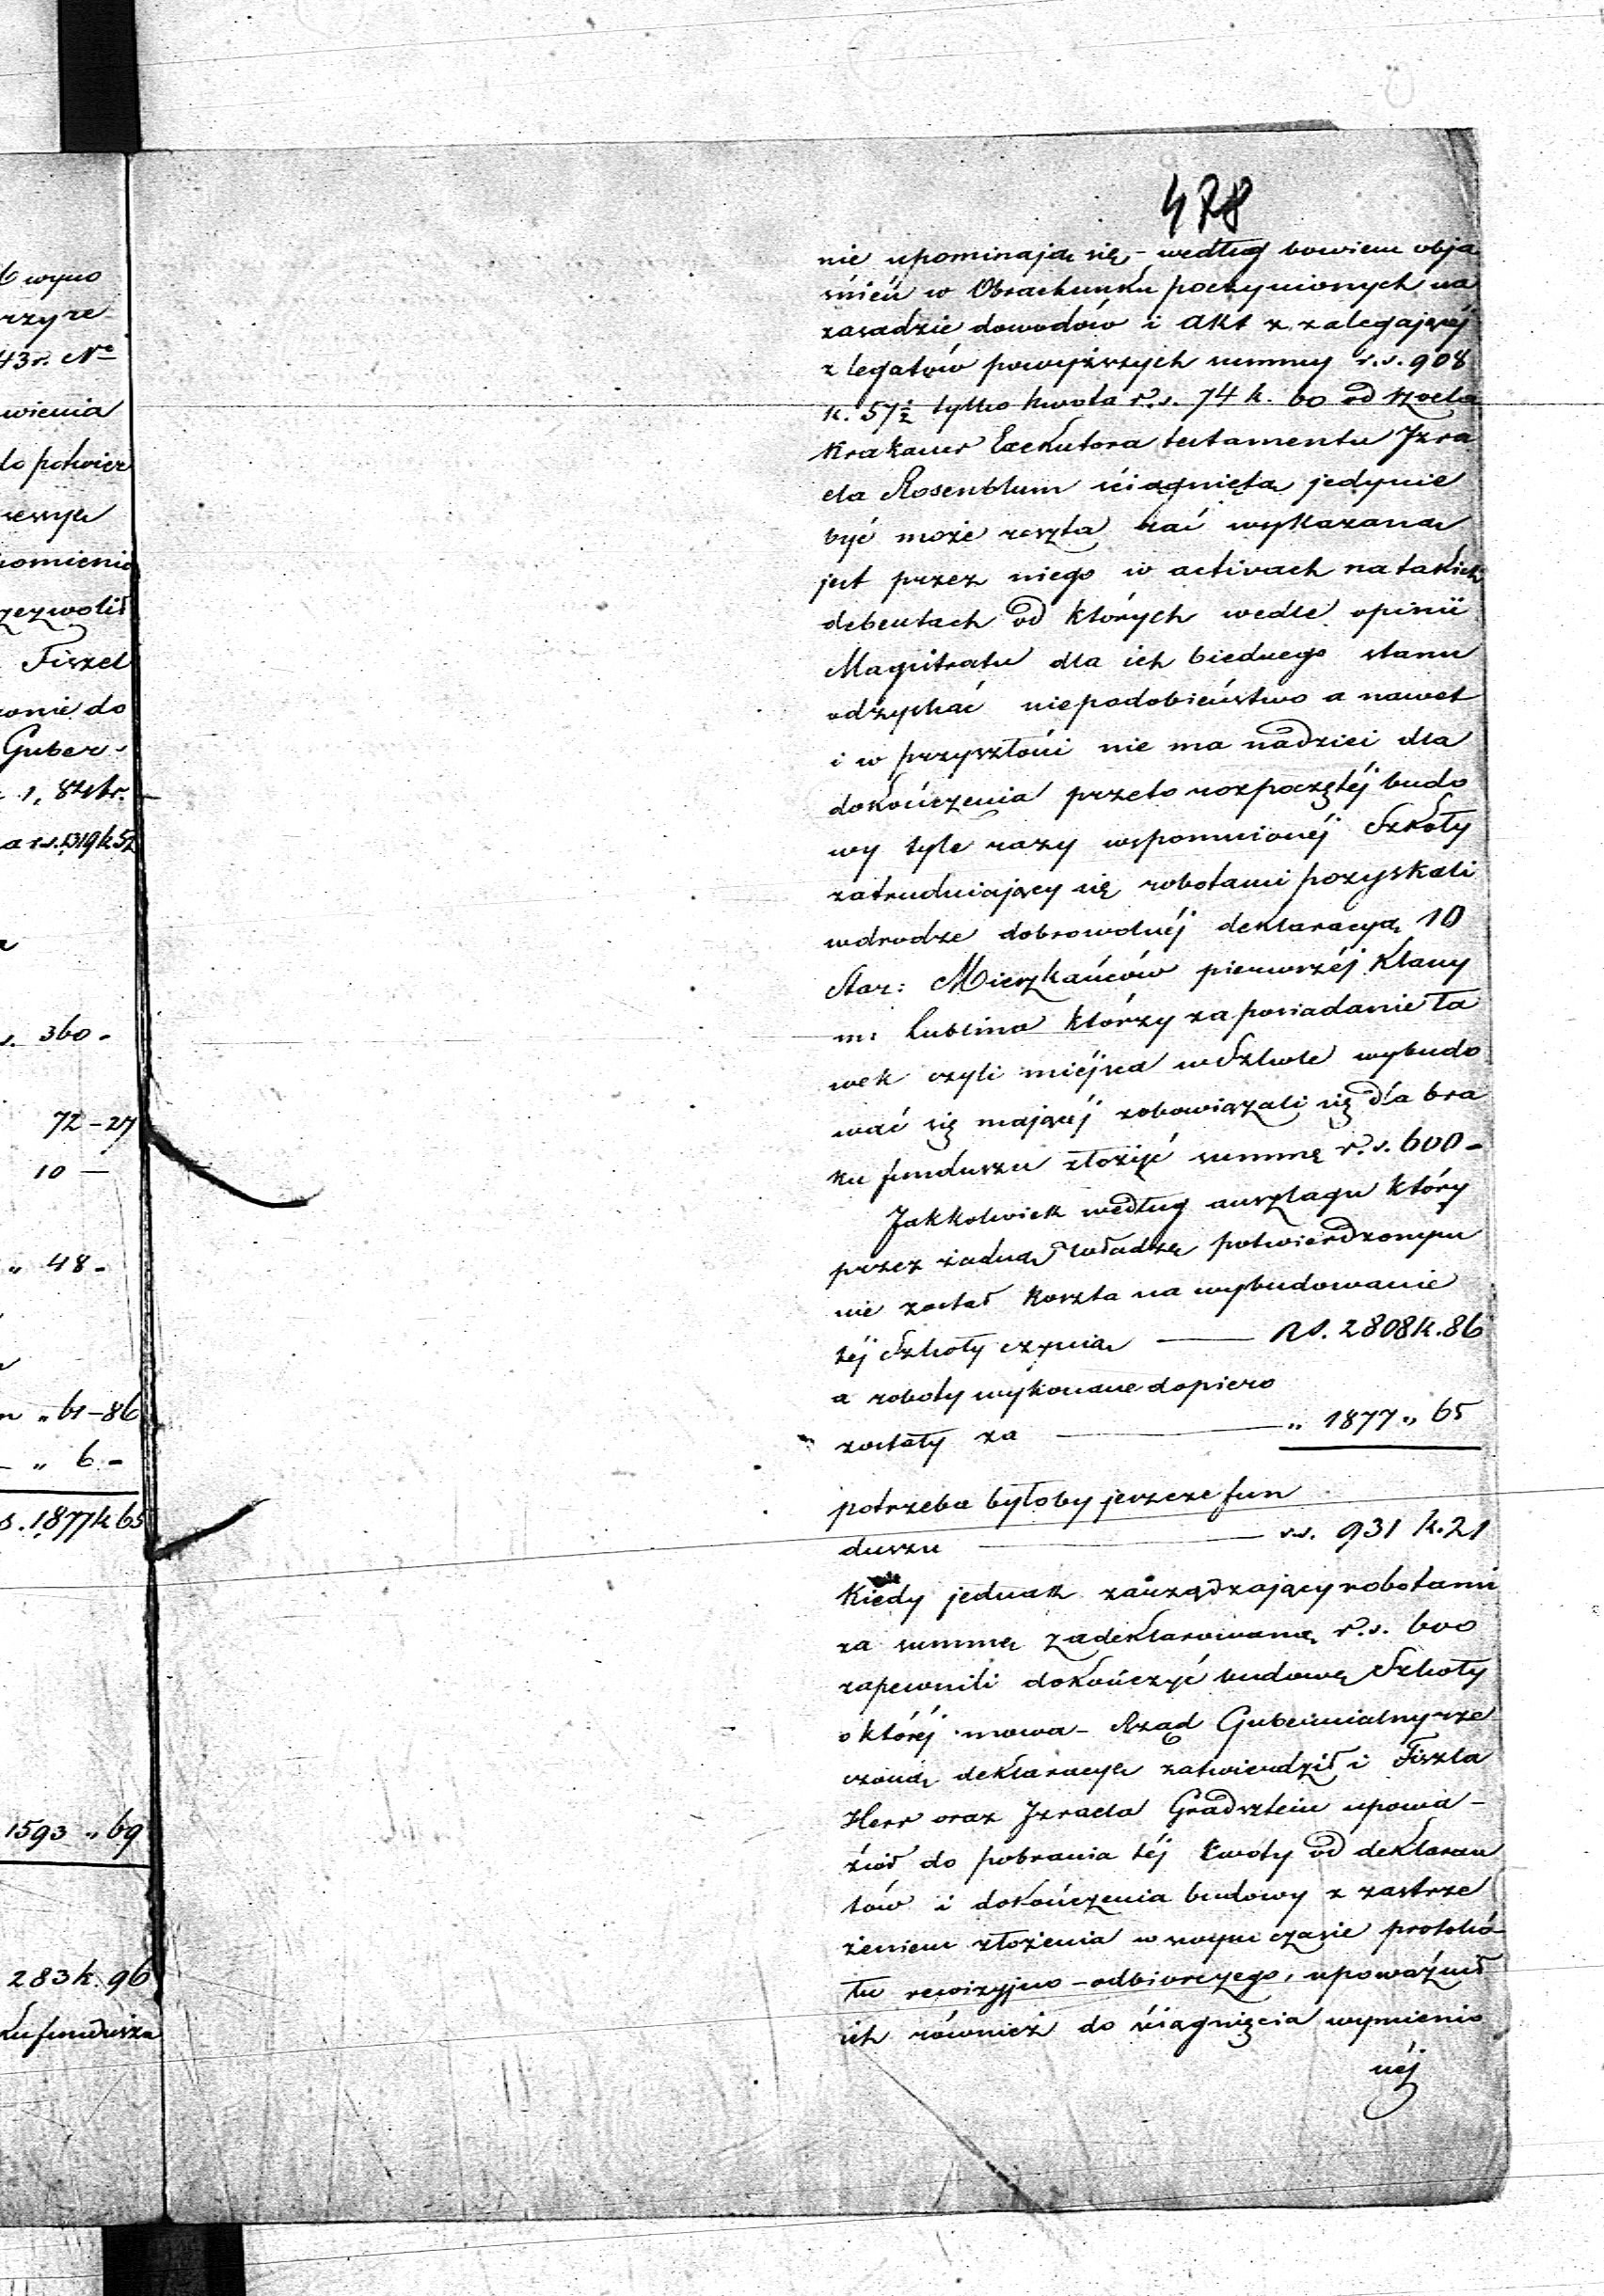 478
nie upominają się – według bowiem obja
śnień w Obrachunku poczynionych na
zasadzie dowodów i Akt z zalegającéj
z legatów powyższych summy r.s. 908
k. 57½ tylko kwota r.s. 74 k. 60 od
Krakauer Exekutora testamentu Izra
ela Rosenblum ściągniętą jedynie
być może reszta zaś wykazaną
jest przez niego w activach na takich
debentach od których wedle opinii
Magistratu dla ich biednego stanu
odzyskać niepodobieństwo a nawet
i w przyszłości nie ma nadziei dla
dokończenia przeto rozpoczętéj budo
wy tyle razy wspomnionéj Szkoły
zatrudniający się robotami pozyskali
w drodze dobrowolnéj deklaracyą 10
Star: Mieszkańców pierwszéj Klassy
m. Lublina którzy za posiadanie ła
wek czyli miéjsca w Szkole wybudo
wać się mającéj zobowiązali się dla bra
ku funduszu złożyć summę r.s. 600 –
Jakkolwiek według anszlagu który
przez żadną Władzę potwierdzonym
nie został koszta na wybudowanie
téj Szkoły czynią — RS. 2808 k. 86
a roboty wykonane dopiero
zostały za — „ 1877 „ 65
potrzeba byłoby jeszcze fun
duszu — r.s. 931 k. 21
Kiedy jednak zarządzający robotami
za summę zadeklarowaną r.s. 600
zapewnili dokończyć budowę Szkoły
o któréj mowa – Rząd Gubernialny rze
czoną deklaracyę zatwierdził i Fiszla
Herr oraz Izraela Gradsztein upowa –
żnił do pobrania téj kwoty od deklaran
tów i dokończenia budowy z zastrze
żeniem złożenia w swym czasie protokó
łu rewizyjno – odbiorczego, upoważnił
ich również do ściągnięcia wymienio
néj
wyno
43r. No
wienia
do potwier
omienio
zezwolił
Fiszel
onie do
Guber-
a r.s. 1319 k 52
360 –
72 – 27
10 —
„ 48 –
„ 61 – 86
„ 6 –
s. 1877 k 65
1593 „ 69
283 k. 96
ku funduszu